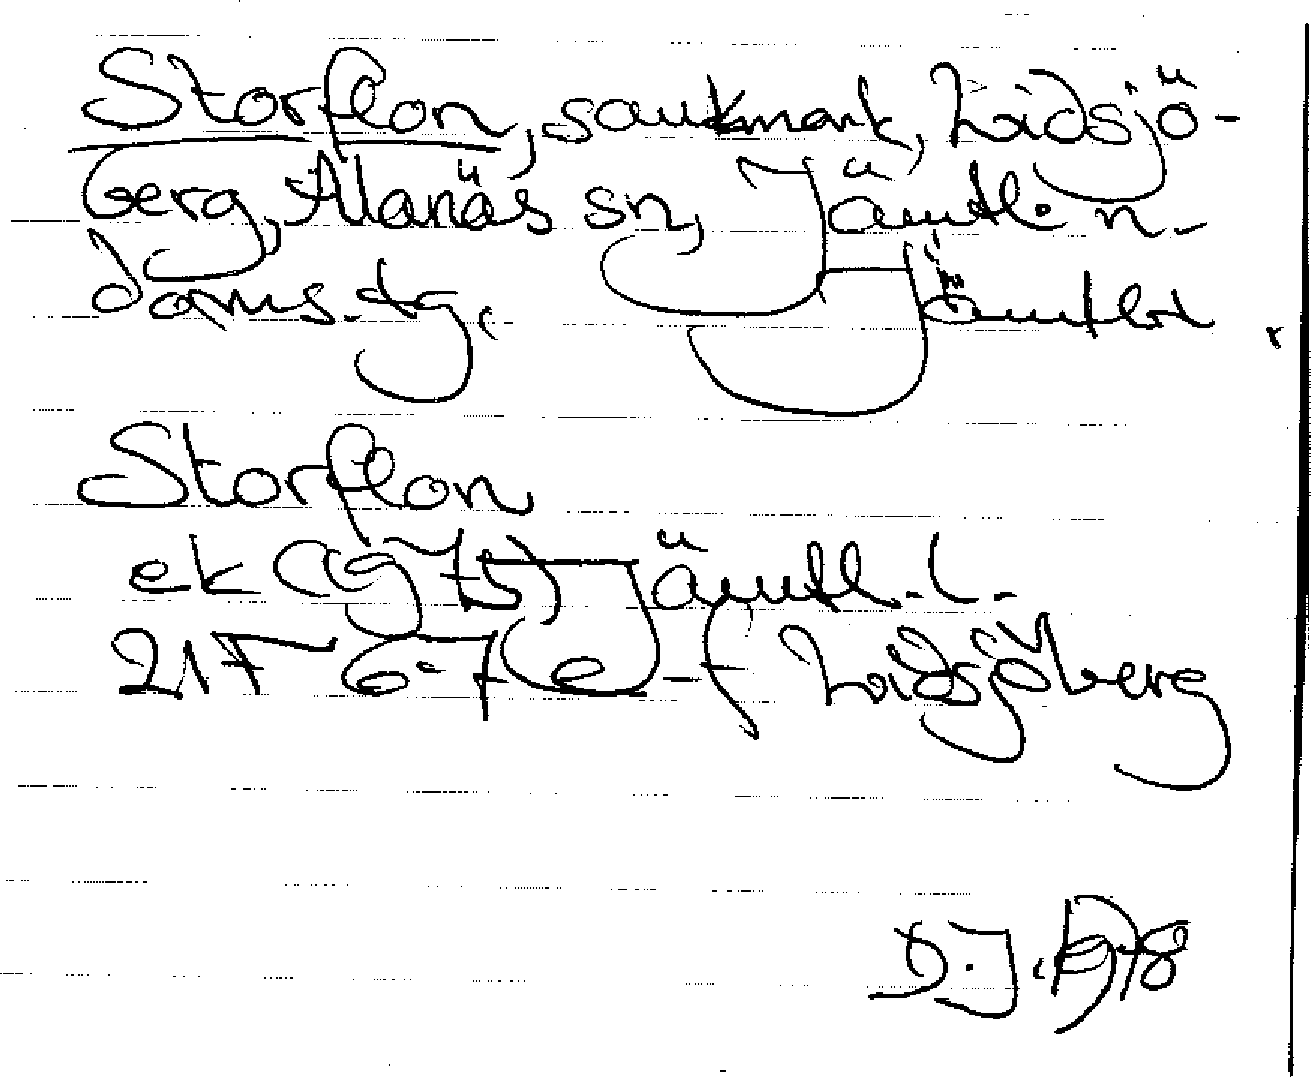 Storflon, saukmark, Lidsjö-
berg, Alanäs sn, Jämtl. n.
doms.dg. Jämtl.
Storflon
ek (1975) Jämtl. l.
217 6-7 e-f Lidsjöberg
D.J. 1978